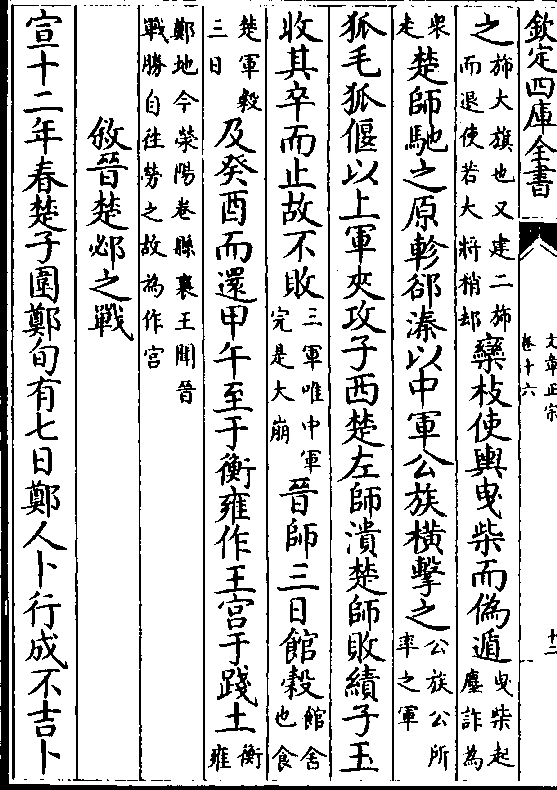 欽定四庫全書
文章正宗
卷十六
十二
之旆大旗也又建二旆而退使若大將稍却欒枝使輿曳柴而偽遁曳柴起塵詐為
衆走楚師馳之原軫郤溱以中軍公族橫擊之公族公所率之軍
狐毛狐偃以上軍夾攻子西楚左師潰楚師敗績子玉
收其卒而止故不敗三軍唯中軍完是大崩晉師三日館穀館舍也食
楚軍穀三日及癸酉而還甲午至于衡雍作王宮于踐土衡雍
鄭地今滎陽卷縣襄王聞晉戰勝自往勞之故為作宮
敘晉楚邲之戰
宣十二年春楚子圍鄭旬有七日鄭人卜行成不吉卜